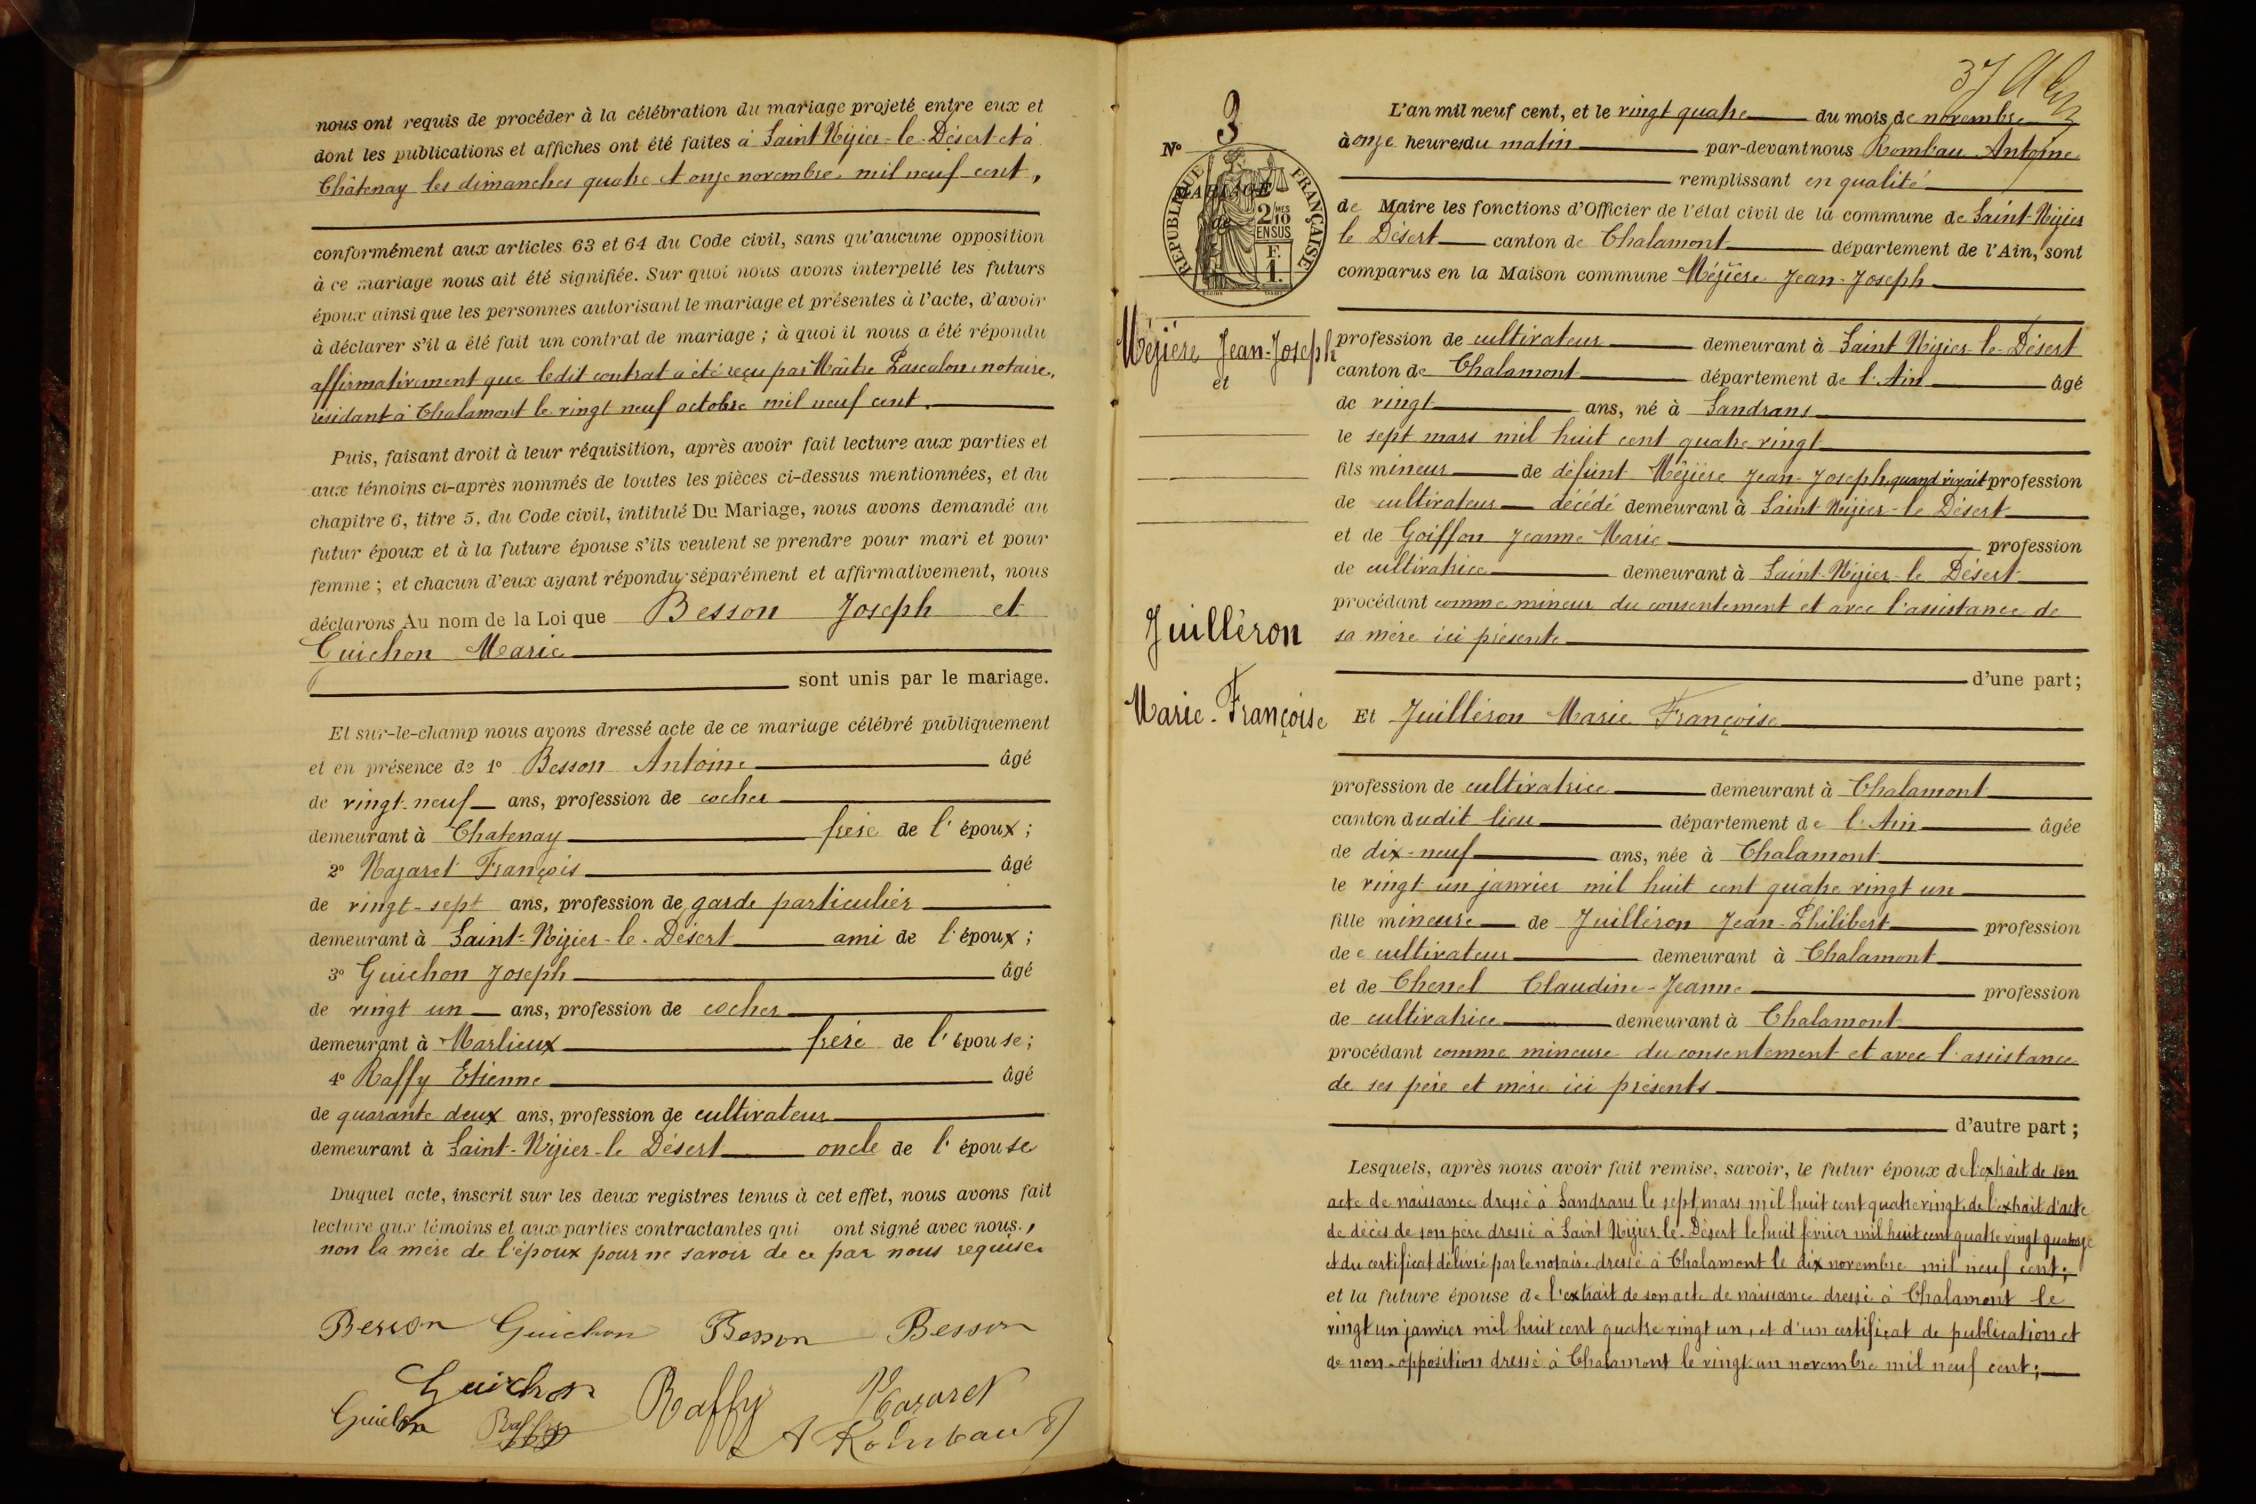 nous ont requis de procéder à la célébration du mariage projeté entre eux et
dont les publications et affiches ont été faites à Saint Nizier-le-Désert et à
Châtenay les dimanches quatre et onze novembre mil neuf cent,
conformément aux articles 63 et 64 du Code civil, sans qu'aucune opposition
à ce mariage nous ait été signifiée. Sur quoi nous avons interpellé les futurs
époux ainsi que les personnes autorisant le mariage et présentes à l'acte, d'avoir
à déclarer s'il a été fait un contrat de mariage ; à quoi il nous a été répondu
affirmativement que ledit contrat a été reçu par Maître Pascalon, notaire,
résidant à Chalamont le vingt neuf octobre mil neuf cent.
Puis, faisant droit à leur réquisition, après avoir fait lecture aux parties et
aux témoins ci-après nommés de toutes les pièces ci-dessus mentionnées, et du
chapitre 6, titre 5, du Code civil, intitulé Du Mariage, nous avons demandé au
futur époux et à la future épouse s'ils veulent se prendre pour mari et pour
femme ; et chacun d'eux ayant répondu séparément et affirmativement, nous
déclarons Au nom de la Loi que Besson Joseph et
Guichon Marie
sont unis par le mariage.
Et sur-le-champ nous avons dressé acte de ce mariage célébré publiquement
et en présence de 1° Besson Antoine âgé
de vingt-neuf ans, profession de cocher
demeurant à Chatenay frère de l'époux ;
2° Nazaret François âgé
de vingt-sept ans, profession de garde particulier
demeurant à Saint-Nizier-le-Désert ami de l'époux ;
3° Guichon Joseph âgé
de vingt un ans, profession de cocher
demeurant à Marlieux frère de l'épouse ;
4° Raffy Etienne âgé
de quarante deux ans, profession de cultivateur
demeurant à Saint-Nizier-le Désert oncle de l'épouse
Duquel acte, inscrit sur les deux registres tenus à cet effet, nous avons fait
lecture aux témoins et aux parties contractantes qui ont signé avec nous.,
non la mère de l'époux pour ne savoir de ce par nous requise.
Besson Guichon Besson Besson
Guichon Raffy Nazaret
Guichon Raffy A Rombau
37
N° 3
MARIAGE
de
RÉPUBLIQUE FRANÇAISE
2/10 MES
EN SUS
F.
1.
Mézière Jean-Joseph
et
Juilléron
Marie-Françoise
L'an mil neuf cent, et le vingt quatre du mois de novembre
à onze heures du matin par-devant nous Rombau Antoine
remplissant en qualité
de Maire les fonctions d'Officier de l'état civil de la commune de Saint-Nizier
le Désert canton de Chalamont département de l'Ain, sont
comparus en la Maison commune Mézière Jean-Joseph
profession de cultivateur demeurant à Saint Nizier-le-Désert
canton de Chalamont département de l'Ain âgé
de vingt ans, né à Sandrans
le sept mars mil huit cent quatre vingt
fils mineur de défunt Mézière Jean-Joseph quand vivait profession
de cultivateur décédé demeurant à Saint-Nizier-le Désert
et de Goiffon Jeanne Marie profession
de cultivatrice demeurant à Saint-Nizier-le Désert
procédant comme mineur du consentement et avec l'assistance de
sa mère ici présente
d'une part ;
Et Juilléron Marie Françoise
profession de cultivatrice demeurant à Chalamont
canton dudit lieu département de l'Ain âgée
de dix-neuf ans, née à Chalamont
le vingt un janvier mil huit cent quatre vingt un
fille mineure de Juilléron Jean-Philibert profession
de cultivateur demeurant à Chalamont
et de Chenel Claudine-Jeanne profession
de cultivatrice demeurant à Chalamont
procédant comme mineure du consentement et avec l'assistance
de ses père et mère ici présents
d'autre part ;
Lesquels, après nous avoir fait remise, savoir, le futur époux de l'extrait de son
acte de naissance dressé à Sandrans le sept mars mil huit cent quatre vingt, de l'extrait d'acte
de décès de son père dressé à Saint Nizier-le-Désert le huit février mil huit cent quatre vingt quatorze
et du certificat délivré par le notaire dressé à Chalamont le dix novembre mil neuf cent ;
et la future épouse de l'extrait de son acte de naissance dressé à Chalamont le
vingt un janvier mil huit cent quatre vingt un, et d'un certificat de publication et
de non-opposition dressé à Chalamont le vingt-un novembre mil neuf cent ;